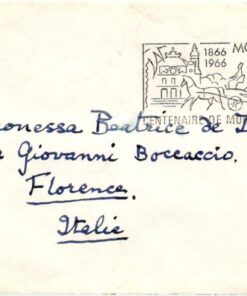 1866 MO
1966
CENTENAIRE DE MO
onessa Beatrice de
Giovanni Boccaccio,
Florence.
Italie